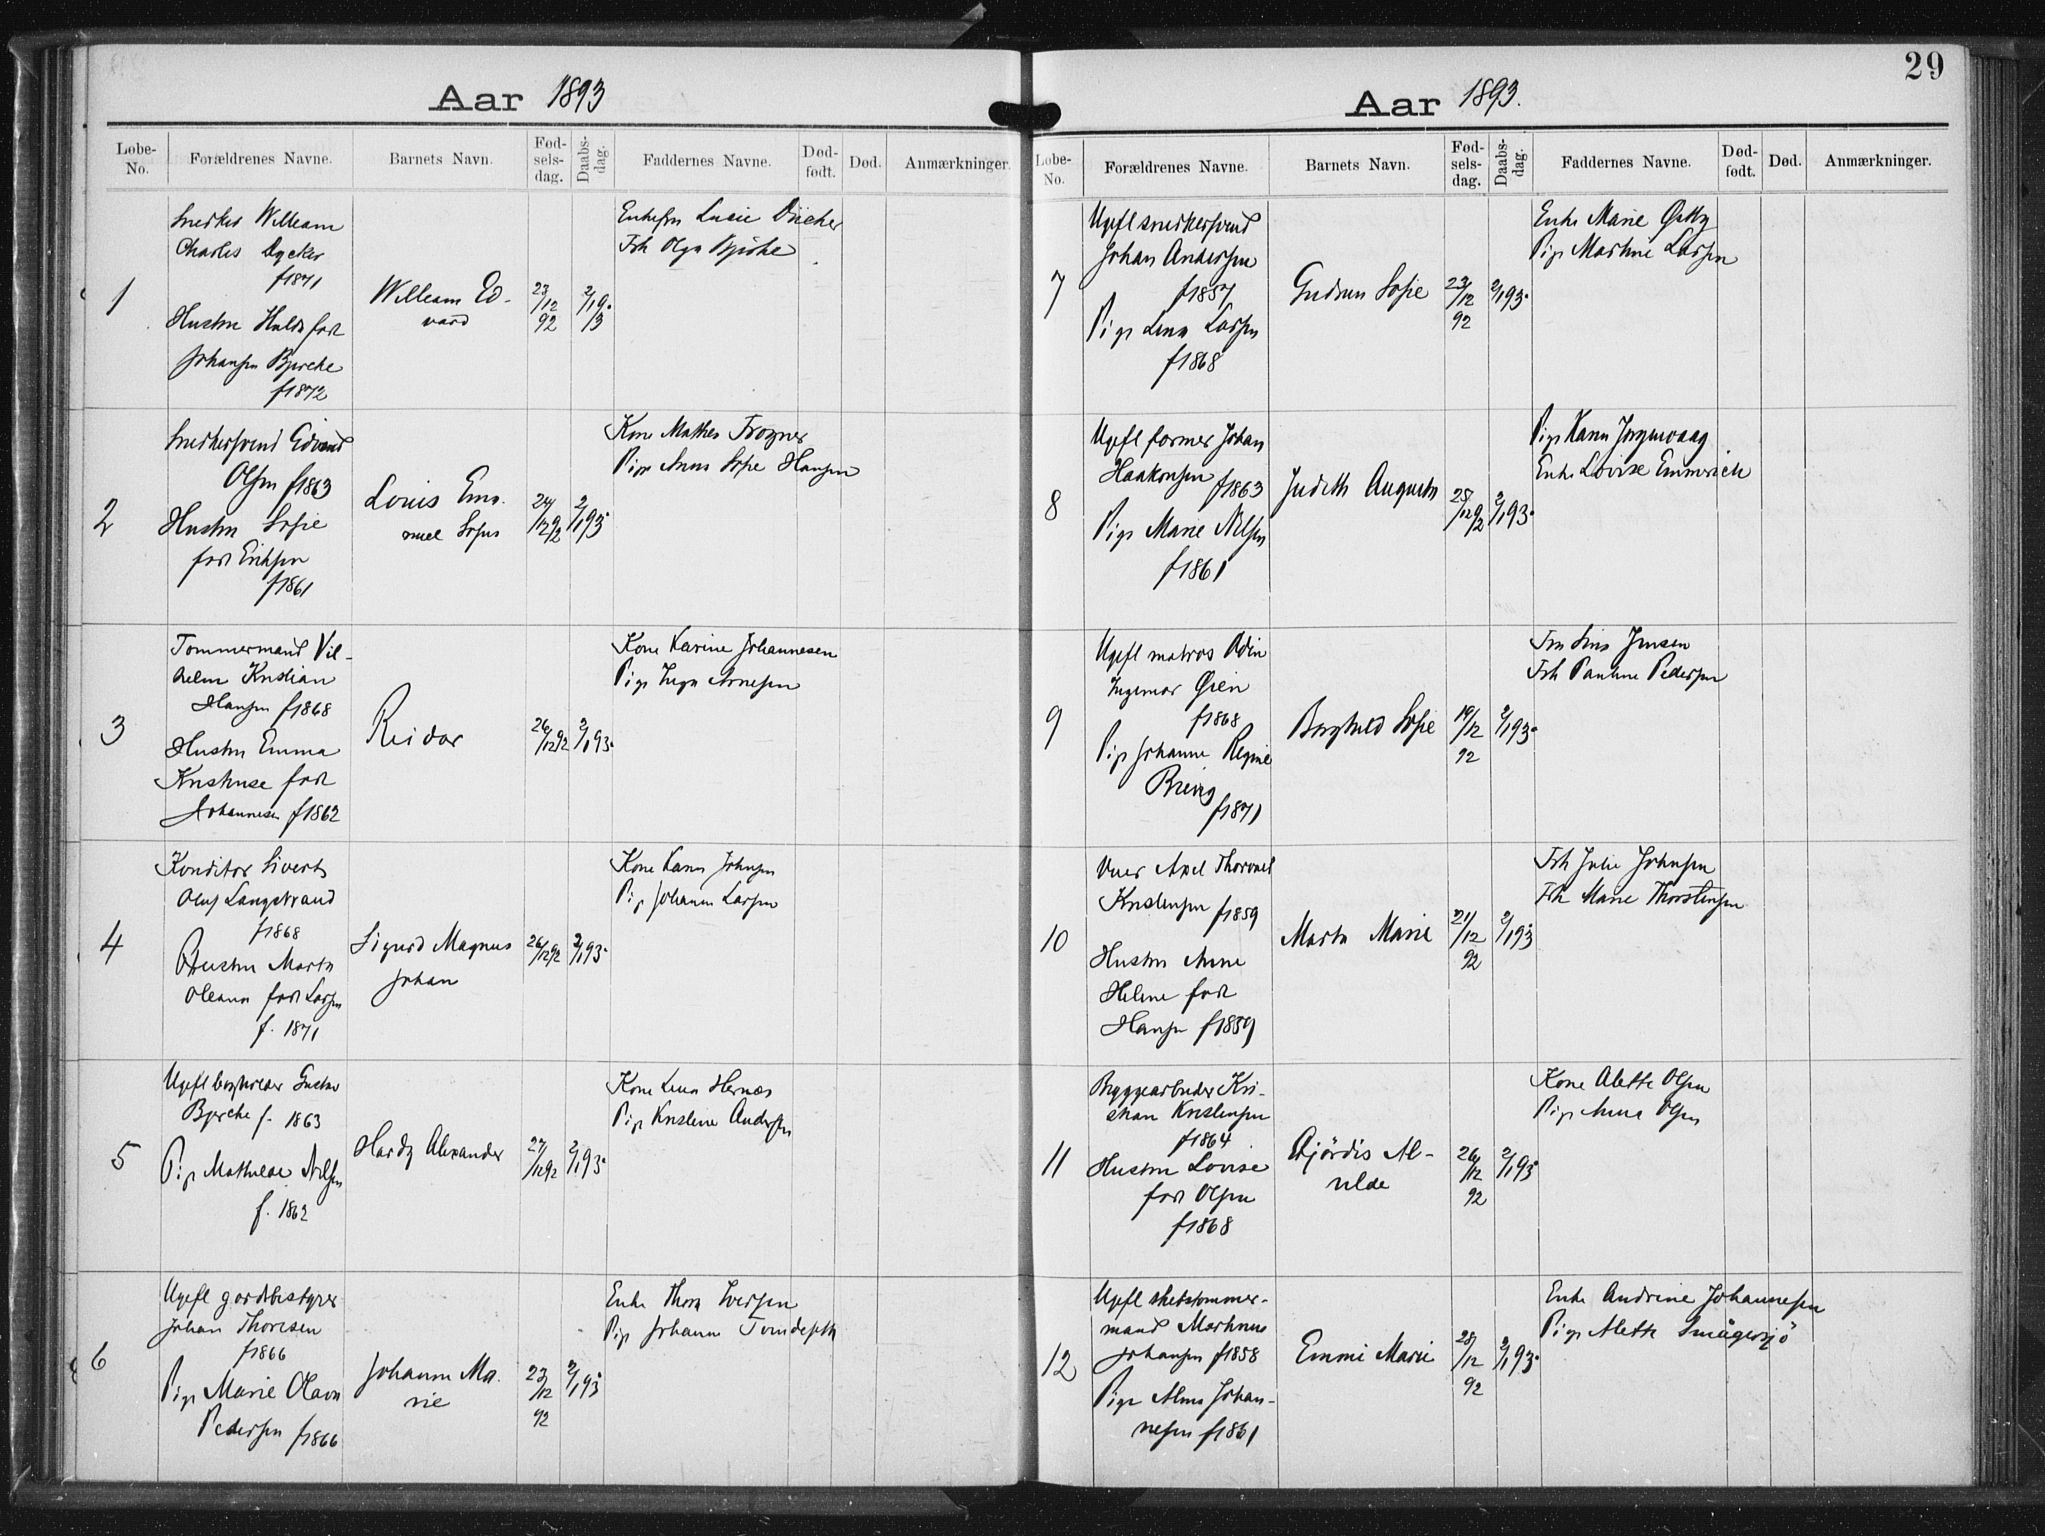 Aar 1893
Løbe-No.
Forældrenes Navne.
Barnets Navn.
Fød-sels-dag.
Daabs-dag.
Faddernes Navne.
Død-født.
Død.
Anmærkninger.
1
Snedker William
Charles Dycker
f1871
Hustru Hulda født
Johansen Bjerche
f1872
William Ed-
vard
23/12 92
2/1 93
Olga
2
Snedkersvend Edvard
Olsen f1863
Hustru Sofie
født Eriksen
f1861
Louis Ema-
nuel Sofus
24/12 92
2/1 93.
Kone Mathea
Pige Anna Sofie Hansen
3
Tømmermand Vil-
helm Kristian
Hansen f1868
Hustru Emma
Kristine født
Johannesen f1862
Reidar
26/12 92
2/1 93.
Kone Karine Johannesen
Pige Inga Arnesen
4
Konditor Sivert
Oluf Langstrand
f1868
Hustru Marta
Oleana født Larsen
f. 1871
Sigurd Magnus
Johan
26/12 92
2/1 93.
Kone Karen Johnsen
Pige Johanne Larsen
5
Ugefl bogholder Gustav
Bjerche f. 1863
Pige Mathilde Nilsen
f. 1862
Hardy Alexander
27/12 92
2/1 93.
Kone Lina Hernæs
Pige Kristine Andersen
6
Ugefl gardsbestyrer
Johan Thoresen
f1866
Pige Marie Olava
Pedersen f1866
Johanne Ma-
rie
23/12 92
2/1 93
Enke Thora Iversen
Pige Johanne
29
Aar 1893.
Løbe-No.
Forældrenes Navne.
Barnets Navn.
Fød-sels-dag.
Daabs-dag.
Faddernes Navne.
Død-født.
Død.
Anmærkninger.
7
Ugefl snedkersvend
Johan Andersen
f1857
Pige Lina Larsen
f1868
Gudrun Sofie
23/12 92
2/1 93.
Enke Marie
Pige Martine Larsen
8
Ugefl former Johan
Haakonsen f1863
Pige Marie Nilsen
f1861
Judith Augusta
25/12 92
2/1 93.
Pige Karen
Enke Lovise Emmerich
9
Ugefl matros Odin
Ingemar Øien
f1868
Pige Johanne Regine
f1871
Borghild Sofie
19/12 92
2/1 93.
Fru Jensen
Frk Pauline Pedersen
10
Axel Thorvald
Kristensen f1859
Hustru Anne
Helene født
Hansen f1859
Marta Marie
21/12 92
2/1 93
Frk Julie Johnsen
Frk Marie Thorstensen
11
Byggearbeider Kri-
stian Kristensen
f1864
Hustru Lovise
født Olsen
f1868
Hjørdis Al-
vilde
26/12 92
2/1 93.
Kone Alette Olsen
Pige Anna Olsen
12
Ugefl skibstømmer-
mand Martinus
Johansen f1858
Pige Alma Johan-
nesen f1861
Emmi Marie
28/12 92
2/1 93.
Enke Andrine Johannesen
Pige Alette